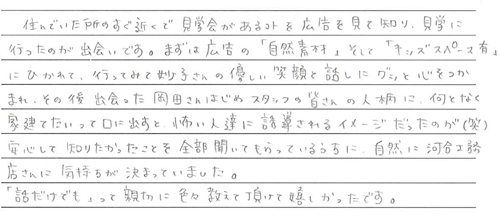 住んでいた所のすぐ近くで見学会があるコトを広告を見て知り、見学に
行ったのが出会いです。まずは広告の「自然素材」そして「キッズスペース有」
にひかれて、行ってみて妙子さんの優しい笑顔と話しにグンと心をつか
まれ、その後出会った岡田さんはじめスタッフの皆さんの人柄に、何となく
家建てたいって口に出すと怖い人達に誘導されるイメージだったのが(笑)
安心して知りたかったことを全部聞いてもらっているうちに、自然に河合工務
店さんに気持ちが決まっていました。
「話だけでも」って親切に色々教えて頂けて嬉しかったです。